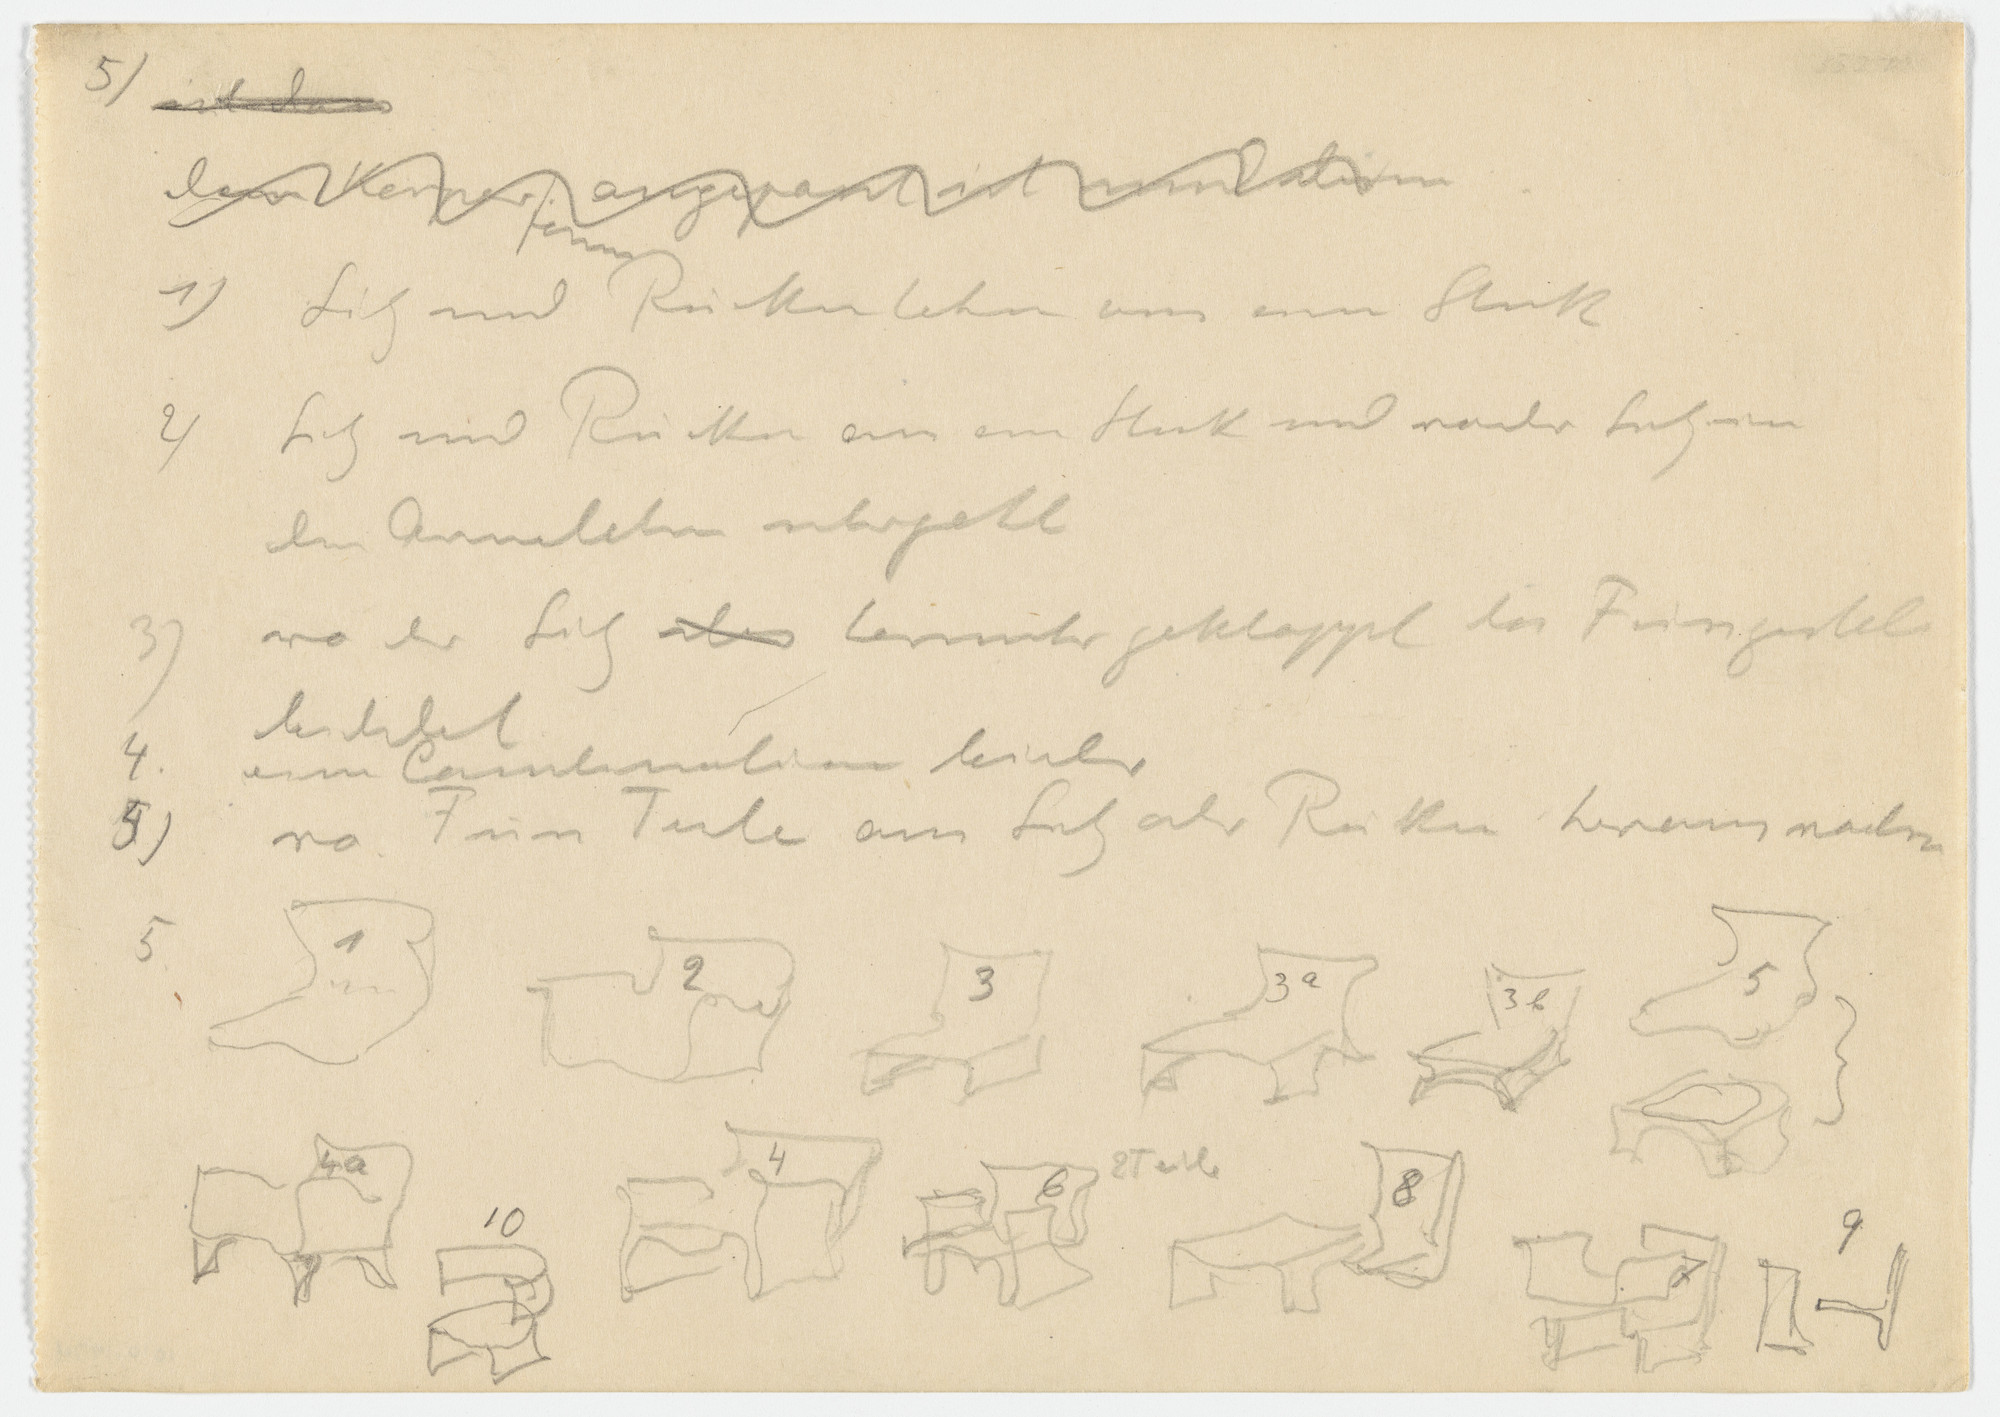 5) ist das
dem Körper angepasst ist und
form
1) Sitz und Rückenlehne aus einem Stück
2) Sitz und Rücken aus einem Stück und wo der Sitz in
den Armlehnen übergeht
3) wo der Sitz heruntergeklappt das Fussgestell
bildet
4. eine Combination beider
5) wo Fuss Teile aus Sitz oder Rücken herauswachsen
5 1 2 3 3a 3b 5
4a 10 4 6 2 Teile 8 7 9